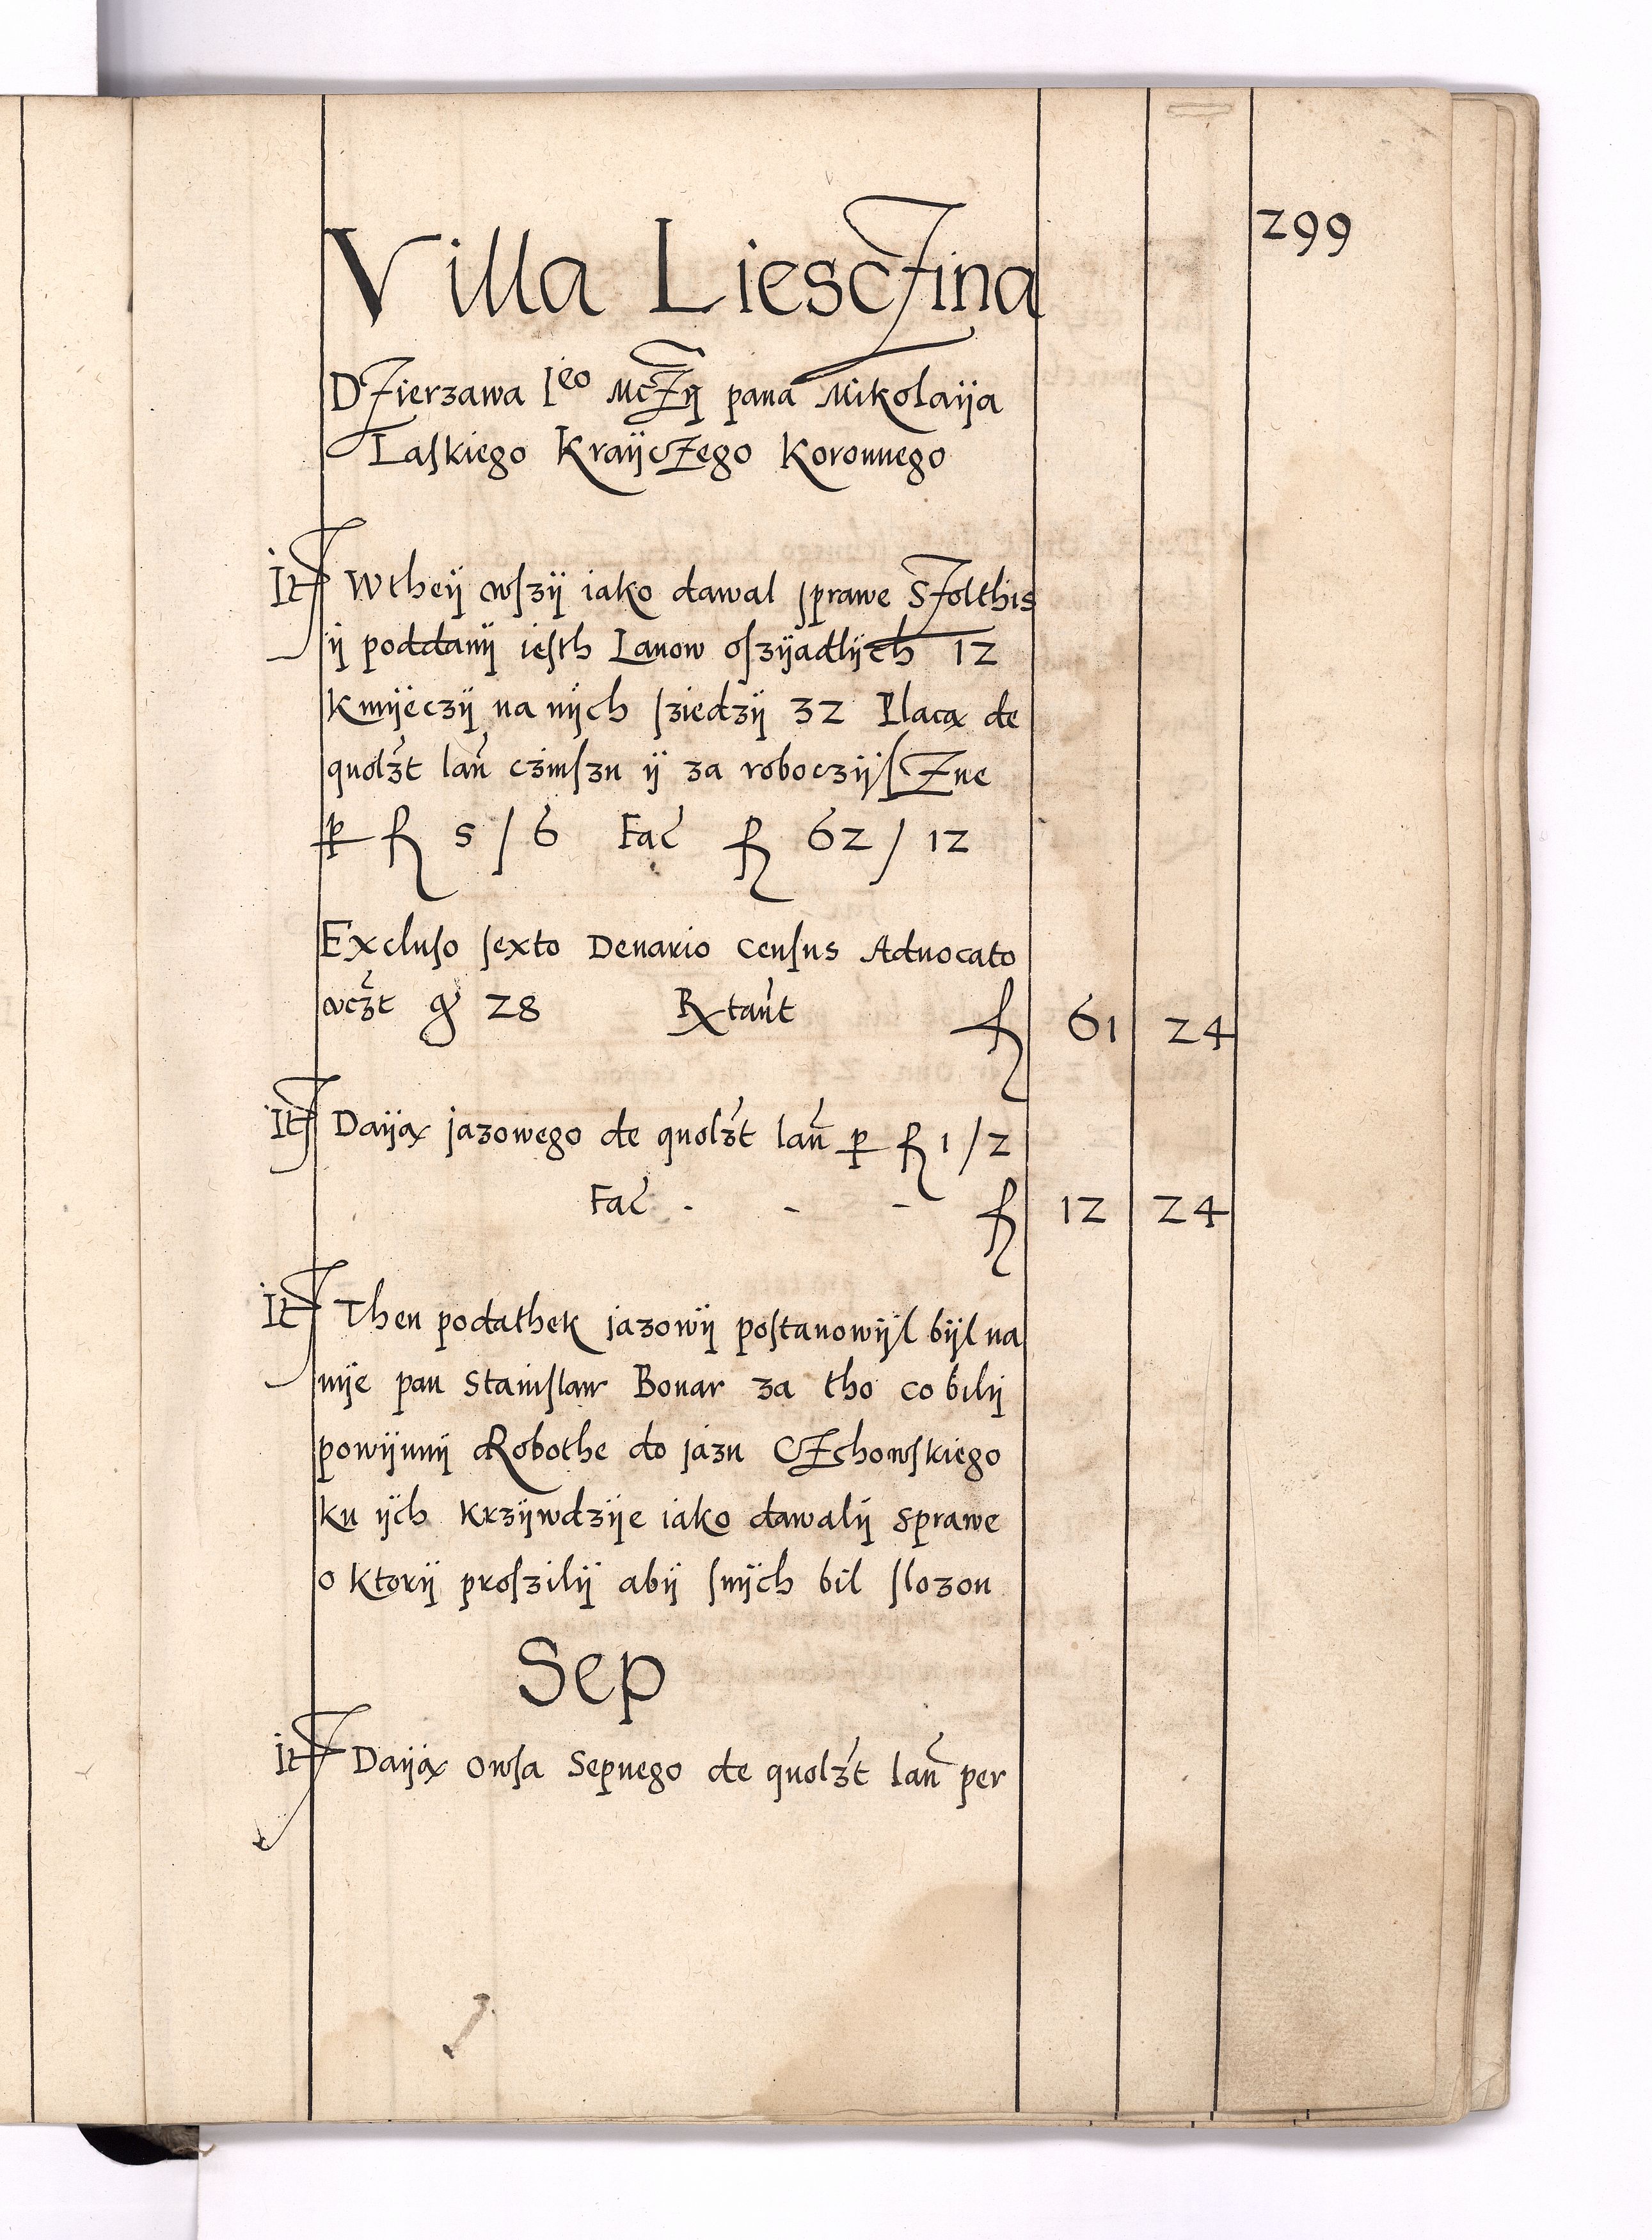 299
Villa Liesczina
Dzierzawa Ieo Mczÿ pana Mikolaÿa
Laskiego Kraÿczego Koronnego
Itē Wtheÿ wszÿ iako dawal sprawe Szolthis
ÿ poddanÿ iesth Lanow oszÿadlÿch 12
Kmÿeczÿ na nÿch sziedzÿ 32 Placą de
quolzt lan̄ czinszu ÿ za roboczÿszne
ꝑ fl 5 / 6 Fac̄ fl 62 / 12
Excluso sexto Denario census Aduocato
vczt gr 28 Rxtan̄t fl 61 24
Itē Daÿą jazowego de quolzt lan̄ ꝑ fl 1 / 2
Fac̄ - - - fl 12 24
Itē Then podathek jazowÿ postanowÿl bÿl na
nÿe pan Stanislaw Bonar za tho co bilÿ
powÿnnÿ Robothe do jazu Czchowskiego
ku ÿch krzÿwdzÿe iako dawalÿ sprawe
o ktorÿ proszilÿ abÿ snÿch bil slozon
Sep
Itē Daÿą owsa Sepnego de quolzt lan̄ per